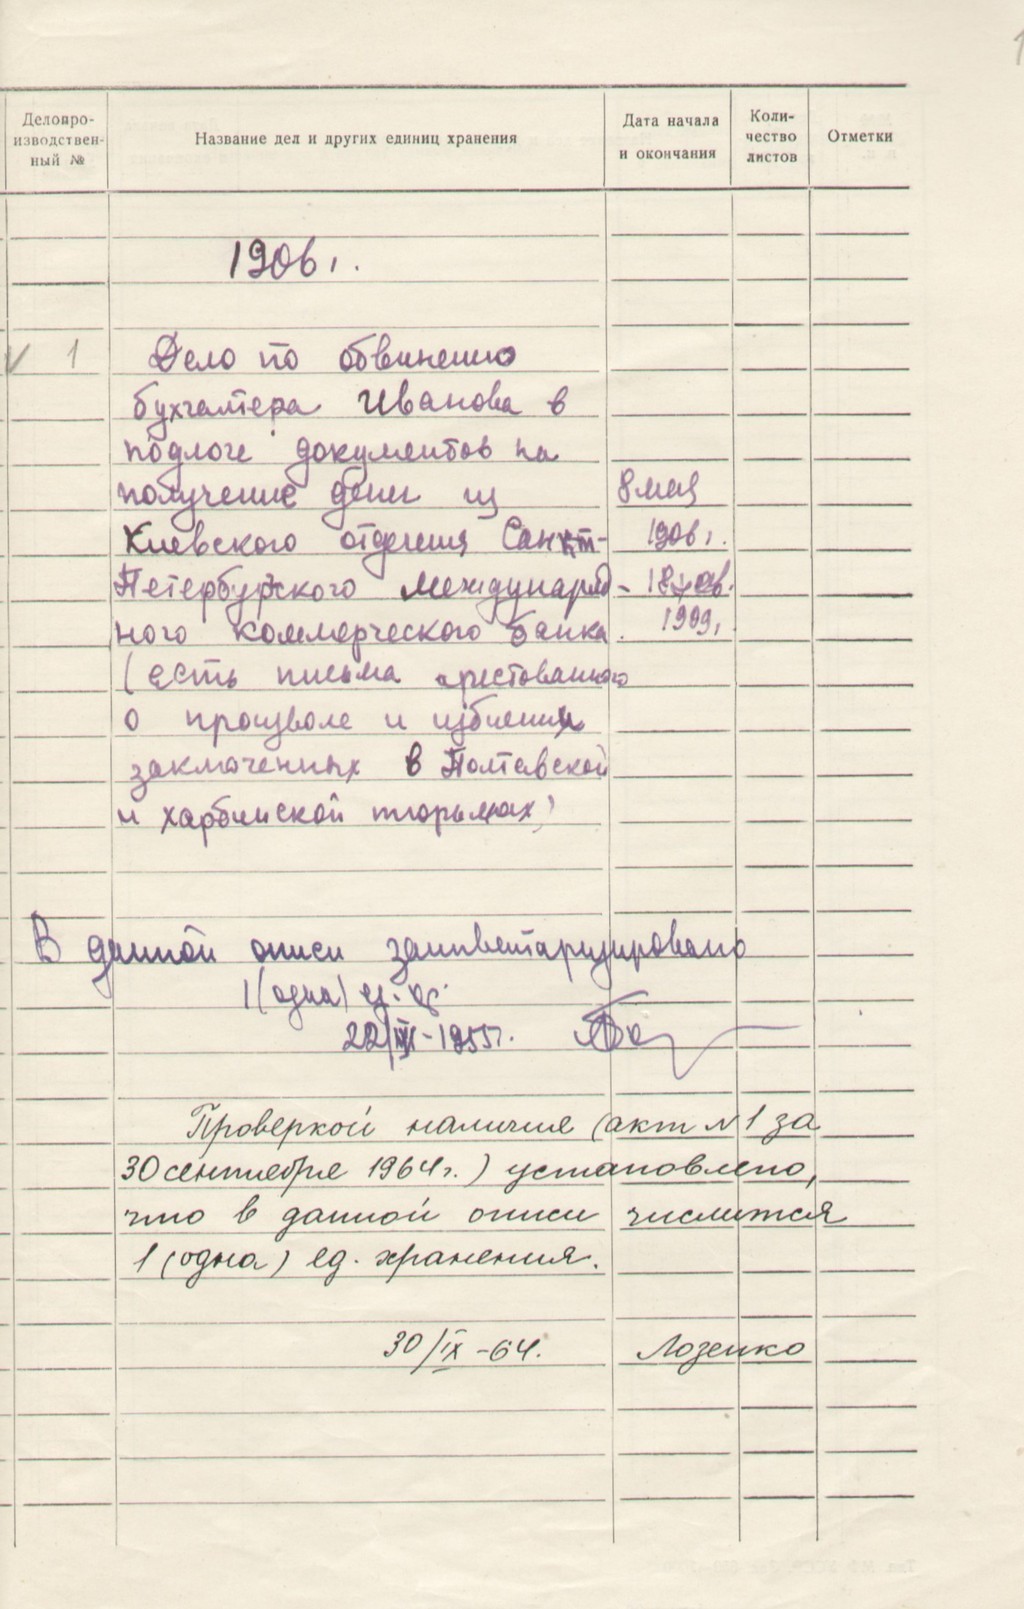 1
Делопро-
изводствен-
ный №
Название дел и других единиц хранения
Дата начала
и окончания
Коли-
чество
листов
Отметки
1906 г.
V 1
Дело по обвинению
бухгалтера Иванова в
подлоге документов на
получение денег из
Киевского отделения Санкт-
Петербургского Международ-
ного коммерческого банка.
(есть письма арестованного
о произволе и избиении
заключенных в Полтавской
и Харбинской тюрьмах)
8 мая
1906 г.
- 18 янв.
1909 г.
В данной описи заинвентаризировано
1 (одна) ед. хр.
22/ -1955 г.
Проверкой наличия (акт N 1 за
30 сентября 1964 г.) установлено,
что в данной описи числится
1 (одна) ед. хранения.
30/IX -64.
Лозенко